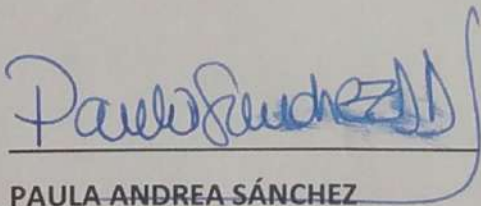 Paula Sanchez
PAULA ANDREA SÁNCHEZ